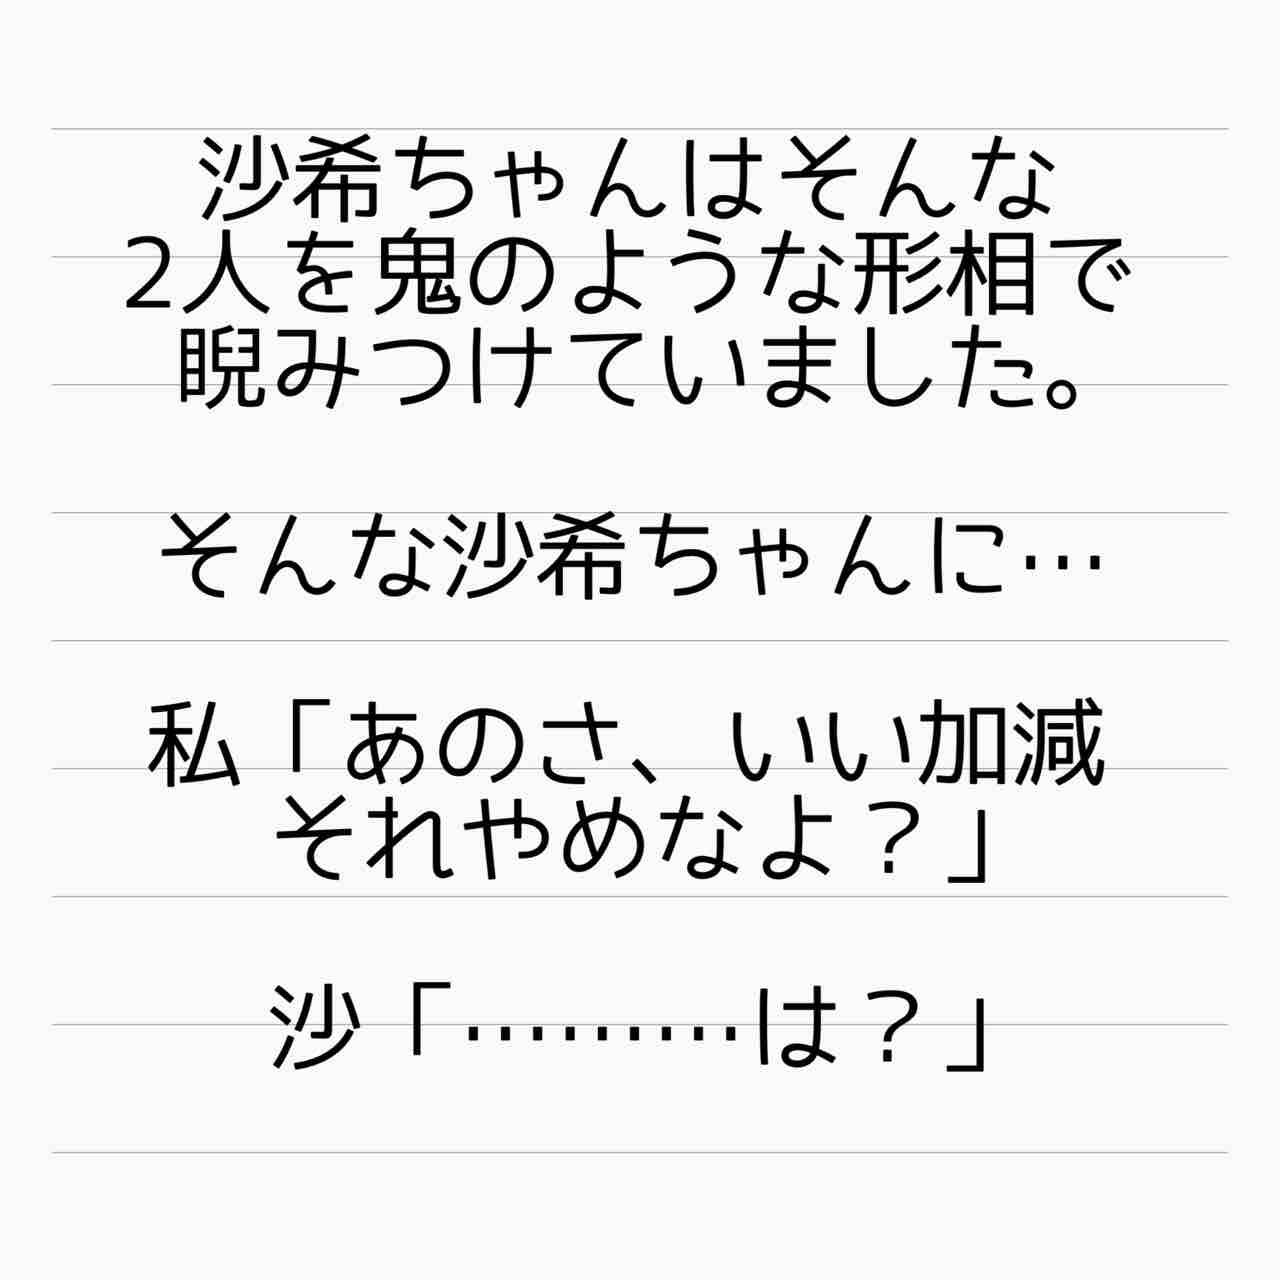 沙希ちゃんはそんな
2人を鬼のような形相で
睨みつけていました。
そんな沙希ちゃんに…
私「あのさ、いい加減
それやめなよ？」
沙「………は？」